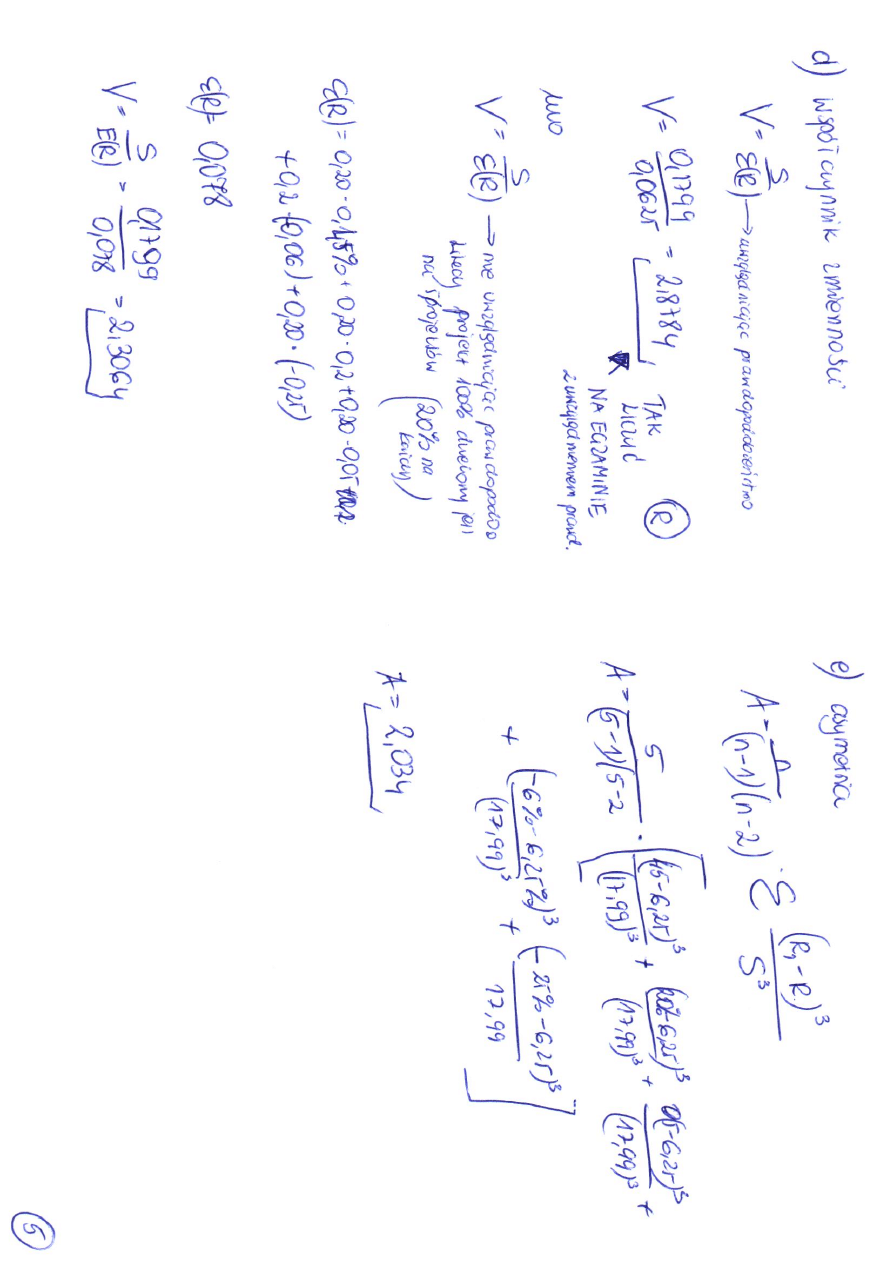 d) współczynnik zmienności
V = S / E(R) → uwzględniając prawdopodobieństwo
V = 0,1799 / 0,0625 = 2,8784
TAK
LICZYĆ
NA EGZAMINIE
z uwzględnieniem prawd.
(R)
V = S / E(R) → nie uwzględniając prawdopodob
każdy projekt 100% dzielony jest
na 5 projektów (20% na
każdy)
E(R) = 0,20 · 0,45% + 0,20 · 0,2 + 0,20 · 0,05
+ 0,2 · (-0,06) + 0,20 · (-0,25)
E(R) = 0,078
V = S / E(R) = 0,1799 / 0,078 = 2,3064
e) asymetria
A = n / (n-1)(n-2) · Σ (R₁ - R)³ / S³
A = 5 / (5-1)(5-2 · [ (45-6,25)³ / (17,99)³ + (20%-6,25)³ / (17,99)³ + (5-6,25)³ / (17,99)³ +
+ (-6%-6,25%)³ / (17,99)³ + (-25%-6,25)³ / 17,99 ]
A = 2,034
5